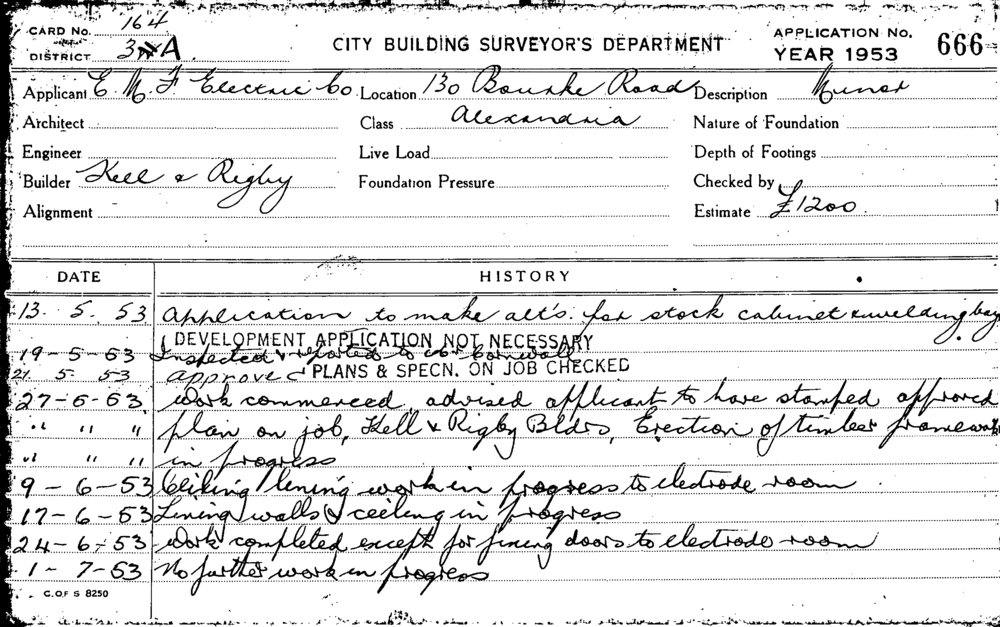 CARD No. 164
DISTRICT 3 A
CITY BUILDING SURVEYOR'S DEPARTMENT
APPLICATION No.
YEAR 1953
666
Applicant E. M. F. Electric Co Location 130 Bourke Road Description Minor
Architect Class Alexandria Nature of Foundation
Engineer Live Load Depth of Footings
Builder Kell & Rigby Foundation Pressure Checked by
Alignment Estimate £1200
DATE HISTORY
13. 5. 53 Application to make alt's. for stock cabinet & welding bay
DEVELOPMENT APPLICATION NOT NECESSARY
19-5-53 Inspected & reported to Mr Cornwall
21. 5. 53 approved PLANS & SPECN. ON JOB CHECKED
27-5-53. Work commenced, advised applicant to have stamped approved
" " " plan on job, Kell & Rigby Bldrs, Erection of timber framework
" " " in progress
9-6-53 Ceiling lining work in progress to electrode room
17-6-53 Lining walls & ceiling in progress
24-6-53 Work completed except for fixing doors to electrode room
1-7-53 No further work in progress
C. OF S 8250